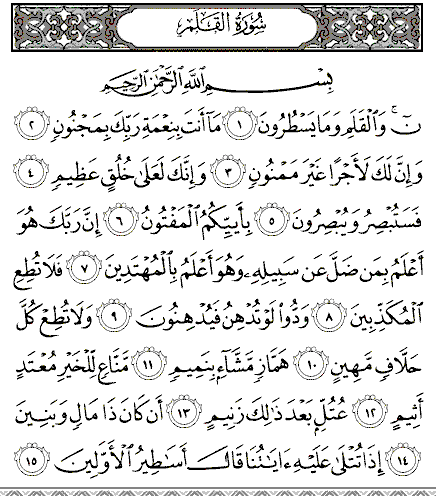 سُورَةُ القَلَمِ
بِسْمِ اللَّهِ الرَّحْمَٰنِ الرَّحِيمِ
نٓ ۚ وَٱلْقَلَمِ وَمَا يَسْطُرُونَ ١ مَآ أَنتَ بِنِعْمَةِ رَبِّكَ بِمَجْنُونٍ ٢
وَإِنَّ لَكَ لَأَجْرًا غَيْرَ مَمْنُونٍ ٣ وَإِنَّكَ لَعَلَىٰ خُلُقٍ عَظِيمٍ ٤
فَسَتُبْصِرُ وَيُبْصِرُونَ ٥ بِأَييِّكُمُ ٱلْمَفْتُونُ ٦ إِنَّ رَبَّكَ هُوَ
أَعْلَمُ بِمَن ضَلَّ عَن سَبِيلِهِۦ وَهُوَ أَعْلَمُ بِٱلْمُهْتَدِينَ ٧ فَلَا تُطِعِ
ٱلْمُكَذِّبِينَ ٨ وَدُّوا۟ لَوْ تُدْهِنُ فَيُدْهِنُونَ ٩ وَلَا تُطِعْ كُلَّ
حَلَّافٍ مَّهِينٍ ١٠ هَمَّازٍ مَّشَّآءٍۭ بِنَمِيمٍ ١١ مَّنَّاعٍ لِّلْخَيْرِ مُعْتَدٍ
أَثِيمٍ ١٢ عُتُلٍّۭ بَعْدَ ذَٰلِكَ زَنِيمٍ ١٣ أَن كَانَ ذَا مَالٍ وَبَنِينَ
١٤ إِذَا تُتْلَىٰ عَلَيْهِ ءَايَٰتُنَا قَالَ أَسَٰطِيرُ ٱلْأَوَّلِينَ ١٥